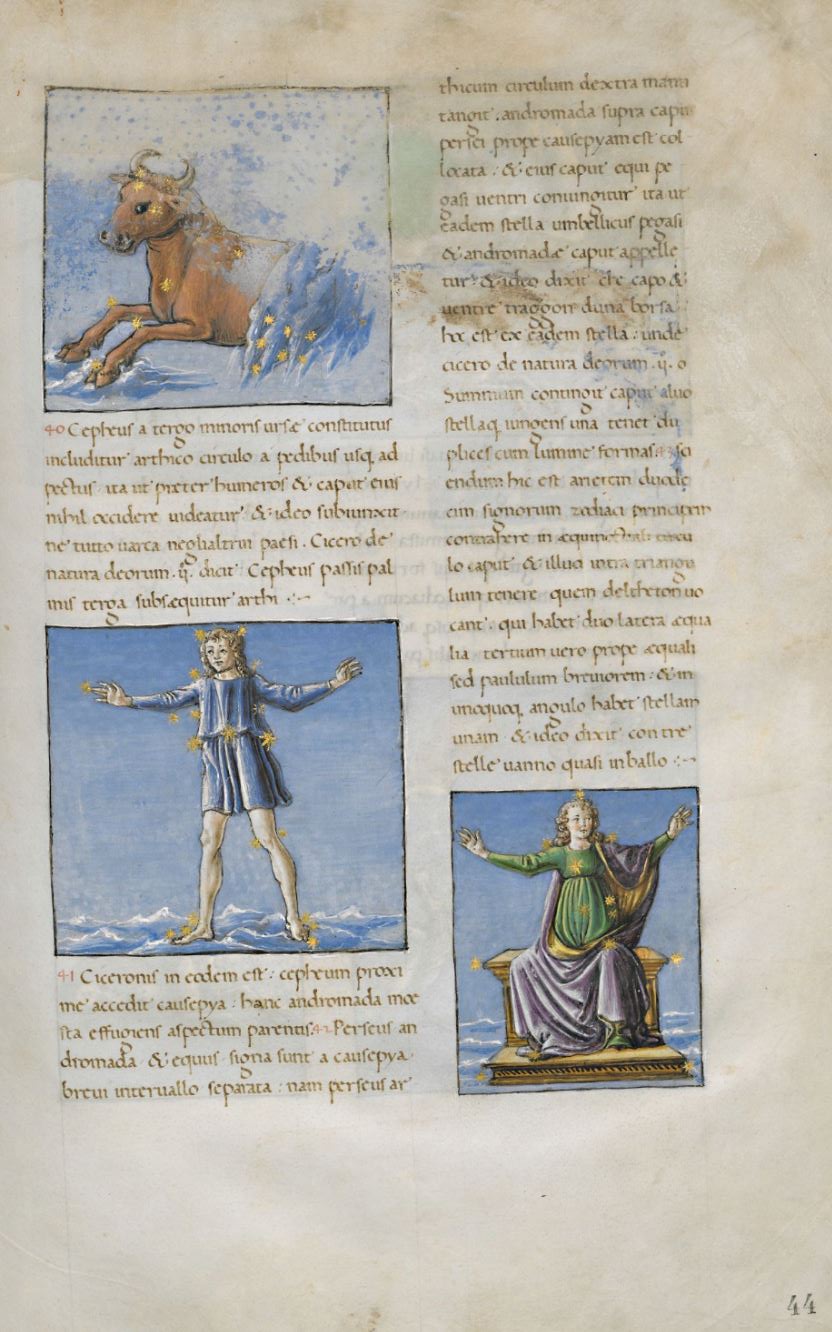 40 Cepheus a tergo minoris ursæ constitutus
includitur arthico circulo a pedibus usq. ad
pectus. ita ut præter humeros & caput eius
nihil occidere uideatur & ideo subiunxit
ne tutto uarca neghaltrui paesi. Cicero de
natura deorum. ij. dicit Cepheus passis pal
mis terga subsæquitur arthi
41 Ciceronis in eodem est: cepheum proxi
me accedit causepya. hanc andromada moe
sta effugiens aspectum parentis. 42 Perseus an
dromada & equus signa sunt a causepya
breui interuallo separata: nam perseus ar
thicum circulum dextra manu
tangit. andromada supra caput
persei prope causepyam est col
locata. & eius caput equi pe
gasi uentri coniungitur ita ut
eadem stella umbellicus pegasi
& andromadæ caput appelle
tur. & ideo dixit che capo &
uentre traggon duna borsa
hoc est ex eadem stella: unde
cicero de natura deorum. ij. o
Summum contingit caput aluo
stellaq. iungens una tenet du
plices cum lumine formas. 43 sci
endum hic est arietem duode
cim signorum zodiaci principem
contrahere in æquinoctiali circu
lo caput & illud intra triangu
lum tenere quem deltheton uo
cant. qui habet duo latera æqua
lia tertium uero prope æquali
sed paululum breuiorem: & in
unoquoq. angulo habet stellam
unam & ideo dixit con tre
stelle uanno quasi in ballo
44